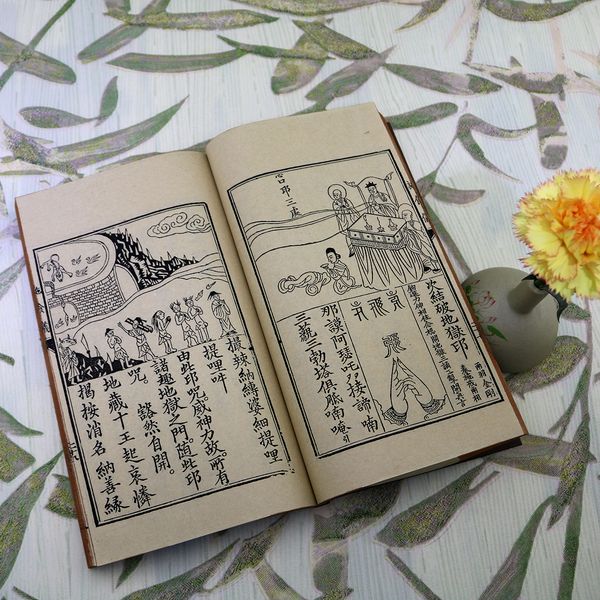 次結破地獄印
兩羽金剛
拳檀慧兩相
那謨阿瑟吒
諦喃
三藐三勃塔俱胝喃唵引
辣納縛婆細提哩
提哩吽
由此印呪威神力故。所有
諸趣地獄之門。隨此印
呪。豁然自開。
地藏十王起哀憐
揭按消名 納善緣